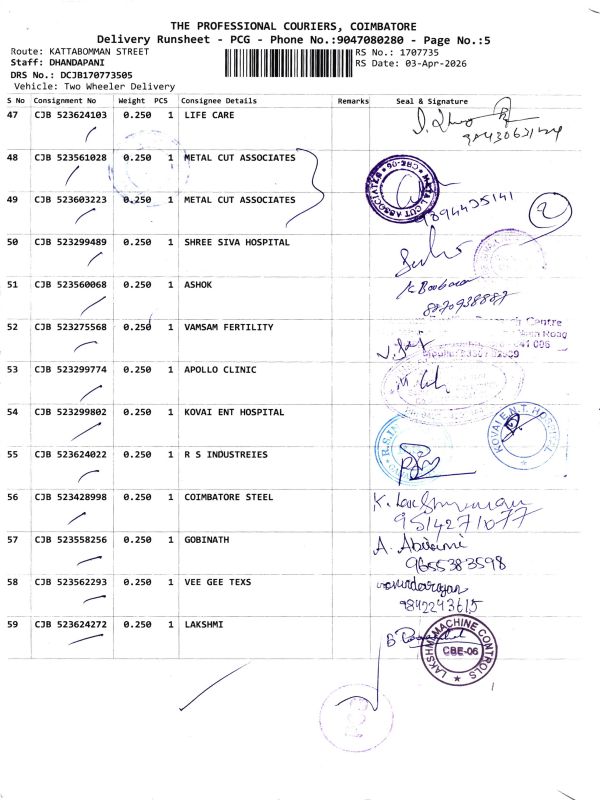 THE PROFESSIONAL COURIERS, COIMBATORE
Delivery Runsheet - PCG - Phone No.:9047080280 - Page No.:5
Route: KATTABOMMAN STREET
RS No.: 1707735
Staff: DHANDAPANI
RS Date: 03-Apr-2026
DRS No.: DCJB170773505
Vehicle: Two Wheeler Delivery
S No Consignment No Weight PCS Consignee Details Remarks Seal & Signature
47 CJB 523624103 0.250 1 LIFE CARE
48 CJB 523561028 0.250 1 METAL CUT ASSOCIATES
METAL CUT ASSOCIATES CBE-06
49 CJB 523603223 0.250 1 METAL CUT ASSOCIATES
9894435141
2
50 CJB 523299489 0.250 1 SHREE SIVA HOSPITAL
51 CJB 523560068 0.250 1 ASHOK
8870938887
52 CJB 523275568 0.250 1 VAMSAM FERTILITY
Centre
Road
53 CJB 523299774 0.250 1 APOLLO CLINIC
54 CJB 523299802 0.250 1 KOVAI ENT HOSPITAL
KOVAI E.N.T. HOSPITAL
55 CJB 523624022 0.250 1 R S INDUSTREIES
56 CJB 523428998 0.250 1 COIMBATORE STEEL
9514271077
57 CJB 523558256 0.250 1 GOBINATH
A. Abirami
9655383598
58 CJB 523562293 0.250 1 VEE GEE TEXS
9842243615
59 CJB 523624272 0.250 1 LAKSHMI
LAKSHMI MACHINE CONTROLS
CBE-06
PCG